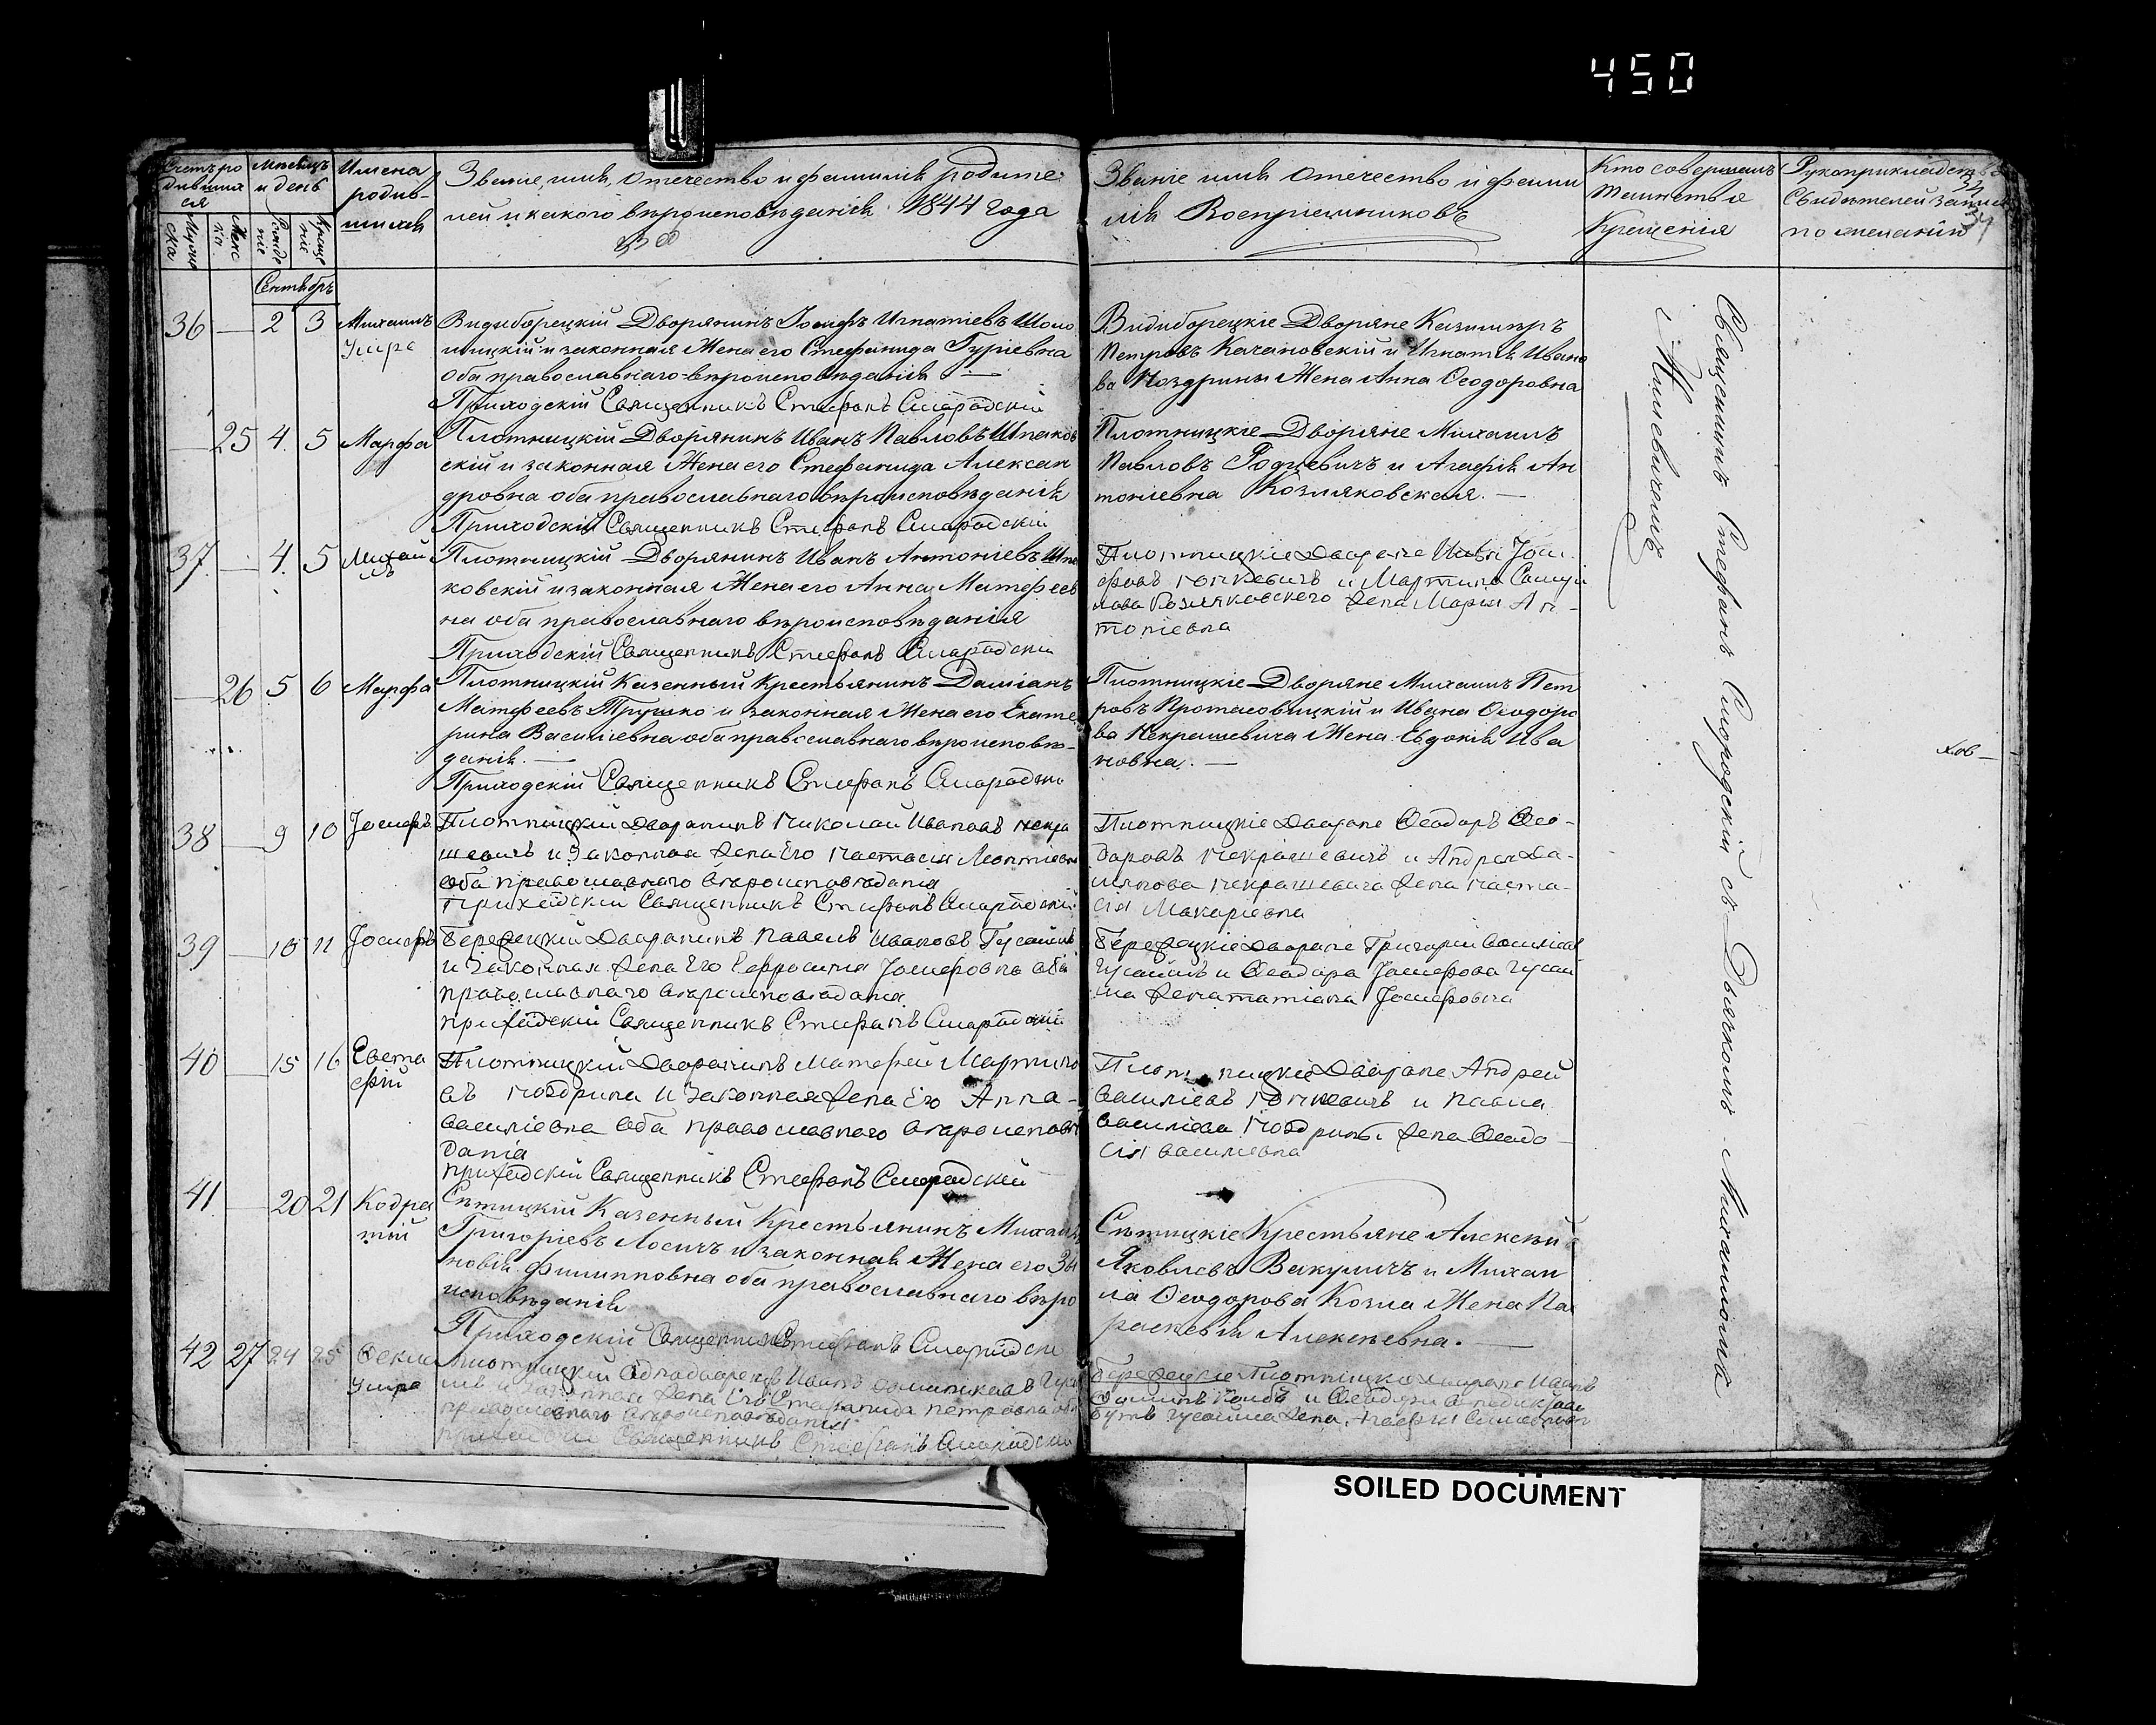 450
Счетъ ро
дивших
ся
Мужес
ска
Женс
ка
Мѣсяцъ
и день
Рожде
ніе
Креще
ніе
Имена
родив-
шихся
Званіе, имя, отечество и фамилія родите-
лей и какого вѣроисповѣданія 1844 года
Званіе имя отечество и фами
лія Воспріемниковъ
Кто совершалъ
таинство
Крещенія
Рукоприкладство
Свидѣтелей записи
по желанію
Сентябрь
36 — 2 3 Михаилъ
Умре
Видиборецкій Дворянинъ Іосифъ Игнатіевъ
и законная Жена его Стефанида Гуріевна
оба православнаго вѣроисповѣданія —
Приходскій Священникъ Стефанъ Смородскій
Видиборецкіе Дворяне Казимиръ
Петровъ Качановскій и Игнатія Ивано
ва Ноздрины Жена Анна Ѳеодоровна
— 25 4 5 Марфа
Плотницкій Дворянинъ Иванъ Павловъ Шпаков
скій и законная Жена его Стефанида Алексан
дровна оба православнаго вѣроисповѣданія
Приходскій Священникъ Стефанъ Смородскій
Плотницкіе Дворяне Михаилъ
Павловъ Родзевичъ и Агафія Ан
тоніевна Козляковская. —
37 — 4 5 Михаи
лъ
Плотницкій Дворянинъ Иванъ Антоніевъ Шпа
ковскій и законная Жена его Анна Матфеев
на оба православнаго вѣроисповѣданія
Приходскій Священникъ Стефанъ Смородскій
Плотницкіе Дворяне Іоси
фовъ и Мартина Самуй
лова Козляковскаго Жена Марія Ан-
тоніевна
— 26 5 6 Марфа
Плотницкій Казенный Крестьянинъ Даміанъ
Матфеевъ Трушко и законная Жена его Екате
рина Василіевна оба православнаго вѣроисповѣ-
данія. —
Приходскій Священникъ Стефанъ Смородскій
Плотницкіе Дворяне Михаилъ Пет
ровъ Протасовицкій и Ивана Ѳеодоро
ва Некрашевича Жена Евдокія Ива
новна. —
38 — 9 10 Іосифъ
Плотницкій Дворянинъ Николай Ивановъ Некра
шевичъ и Законная Жена Его Настасія Леонтіевна
оба православнаго вѣроисповѣданія
Приходскій Священникъ Стефанъ Смородскій
Плотницкіе Дворяне Ѳеодоръ Ѳео-
доровъ Некрашевичъ и Андрея Да-
міанова Некрашевича Жена Наста-
сія Макаріевна
39 — 10 11 Іосифъ
Бережецкій Дворянинъ Павелъ Ивановъ
и Законная Жена Его Ефросинія Іосифовна оба
православнаго вѣроисповѣданія
Приходскій Священникъ Стефанъ Смородскій
Бережецкіе Дворяне Григорій Василіевъ
и Ѳеодора Іосифова
Жена Татіана Іосифовна
40 — 15 16 Евста
фій
Плотницкій Дворянинъ Матфей Мартино
въ Ноздрина и Законная Жена Его Анна-
Василіевна оба православнаго вѣроисповѣ
данія
Приходскій Священникъ Стефанъ Смородскій
Плотницкіе Дворяне Андрей
Василіевъ и Павла
Василіева Ноздрины Жена Ѳеодо-
сія Василіевна
41 — 20 21 Кодра
тій
Сѣтицкій Казенный Крестьянинъ Михаилъ
Григоріевъ Лосичъ и законная Жена его Зи
новія Филипповна оба православнаго вѣро
исповѣданія
Приходскій Священникъ Стефанъ Смородскій
Сѣтицкіе Крестьяне Алексѣй
Яковлевъ Вакуличъ и Михаи
ла Ѳеодорова Козла Жена Па
раскевія Алексѣевна. —
42 27 24 25 Ѳекла
Умре
Плотницкій Однодворецъ Иванъ
и Законная Жена Его Стефанида Петровна оба
православнаго вѣроисповѣданія
Приходскій Священникъ Стефанъ Смородскій
Священникъ Стефанъ Смородскій съ Дьячкомъ Михаиломъ
SOILED DOCUMENT